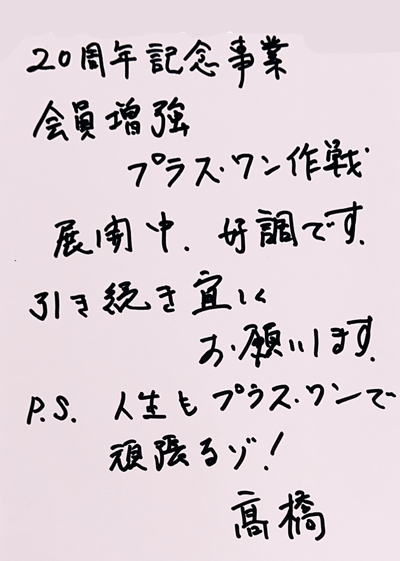 20周年記念事業
会員増強
プラス・ワン作戦
展開中、好調です。
引き続き宜しく
お願いします。
P.S. 人生もプラス・ワンで
頑張るゾ!
髙橋